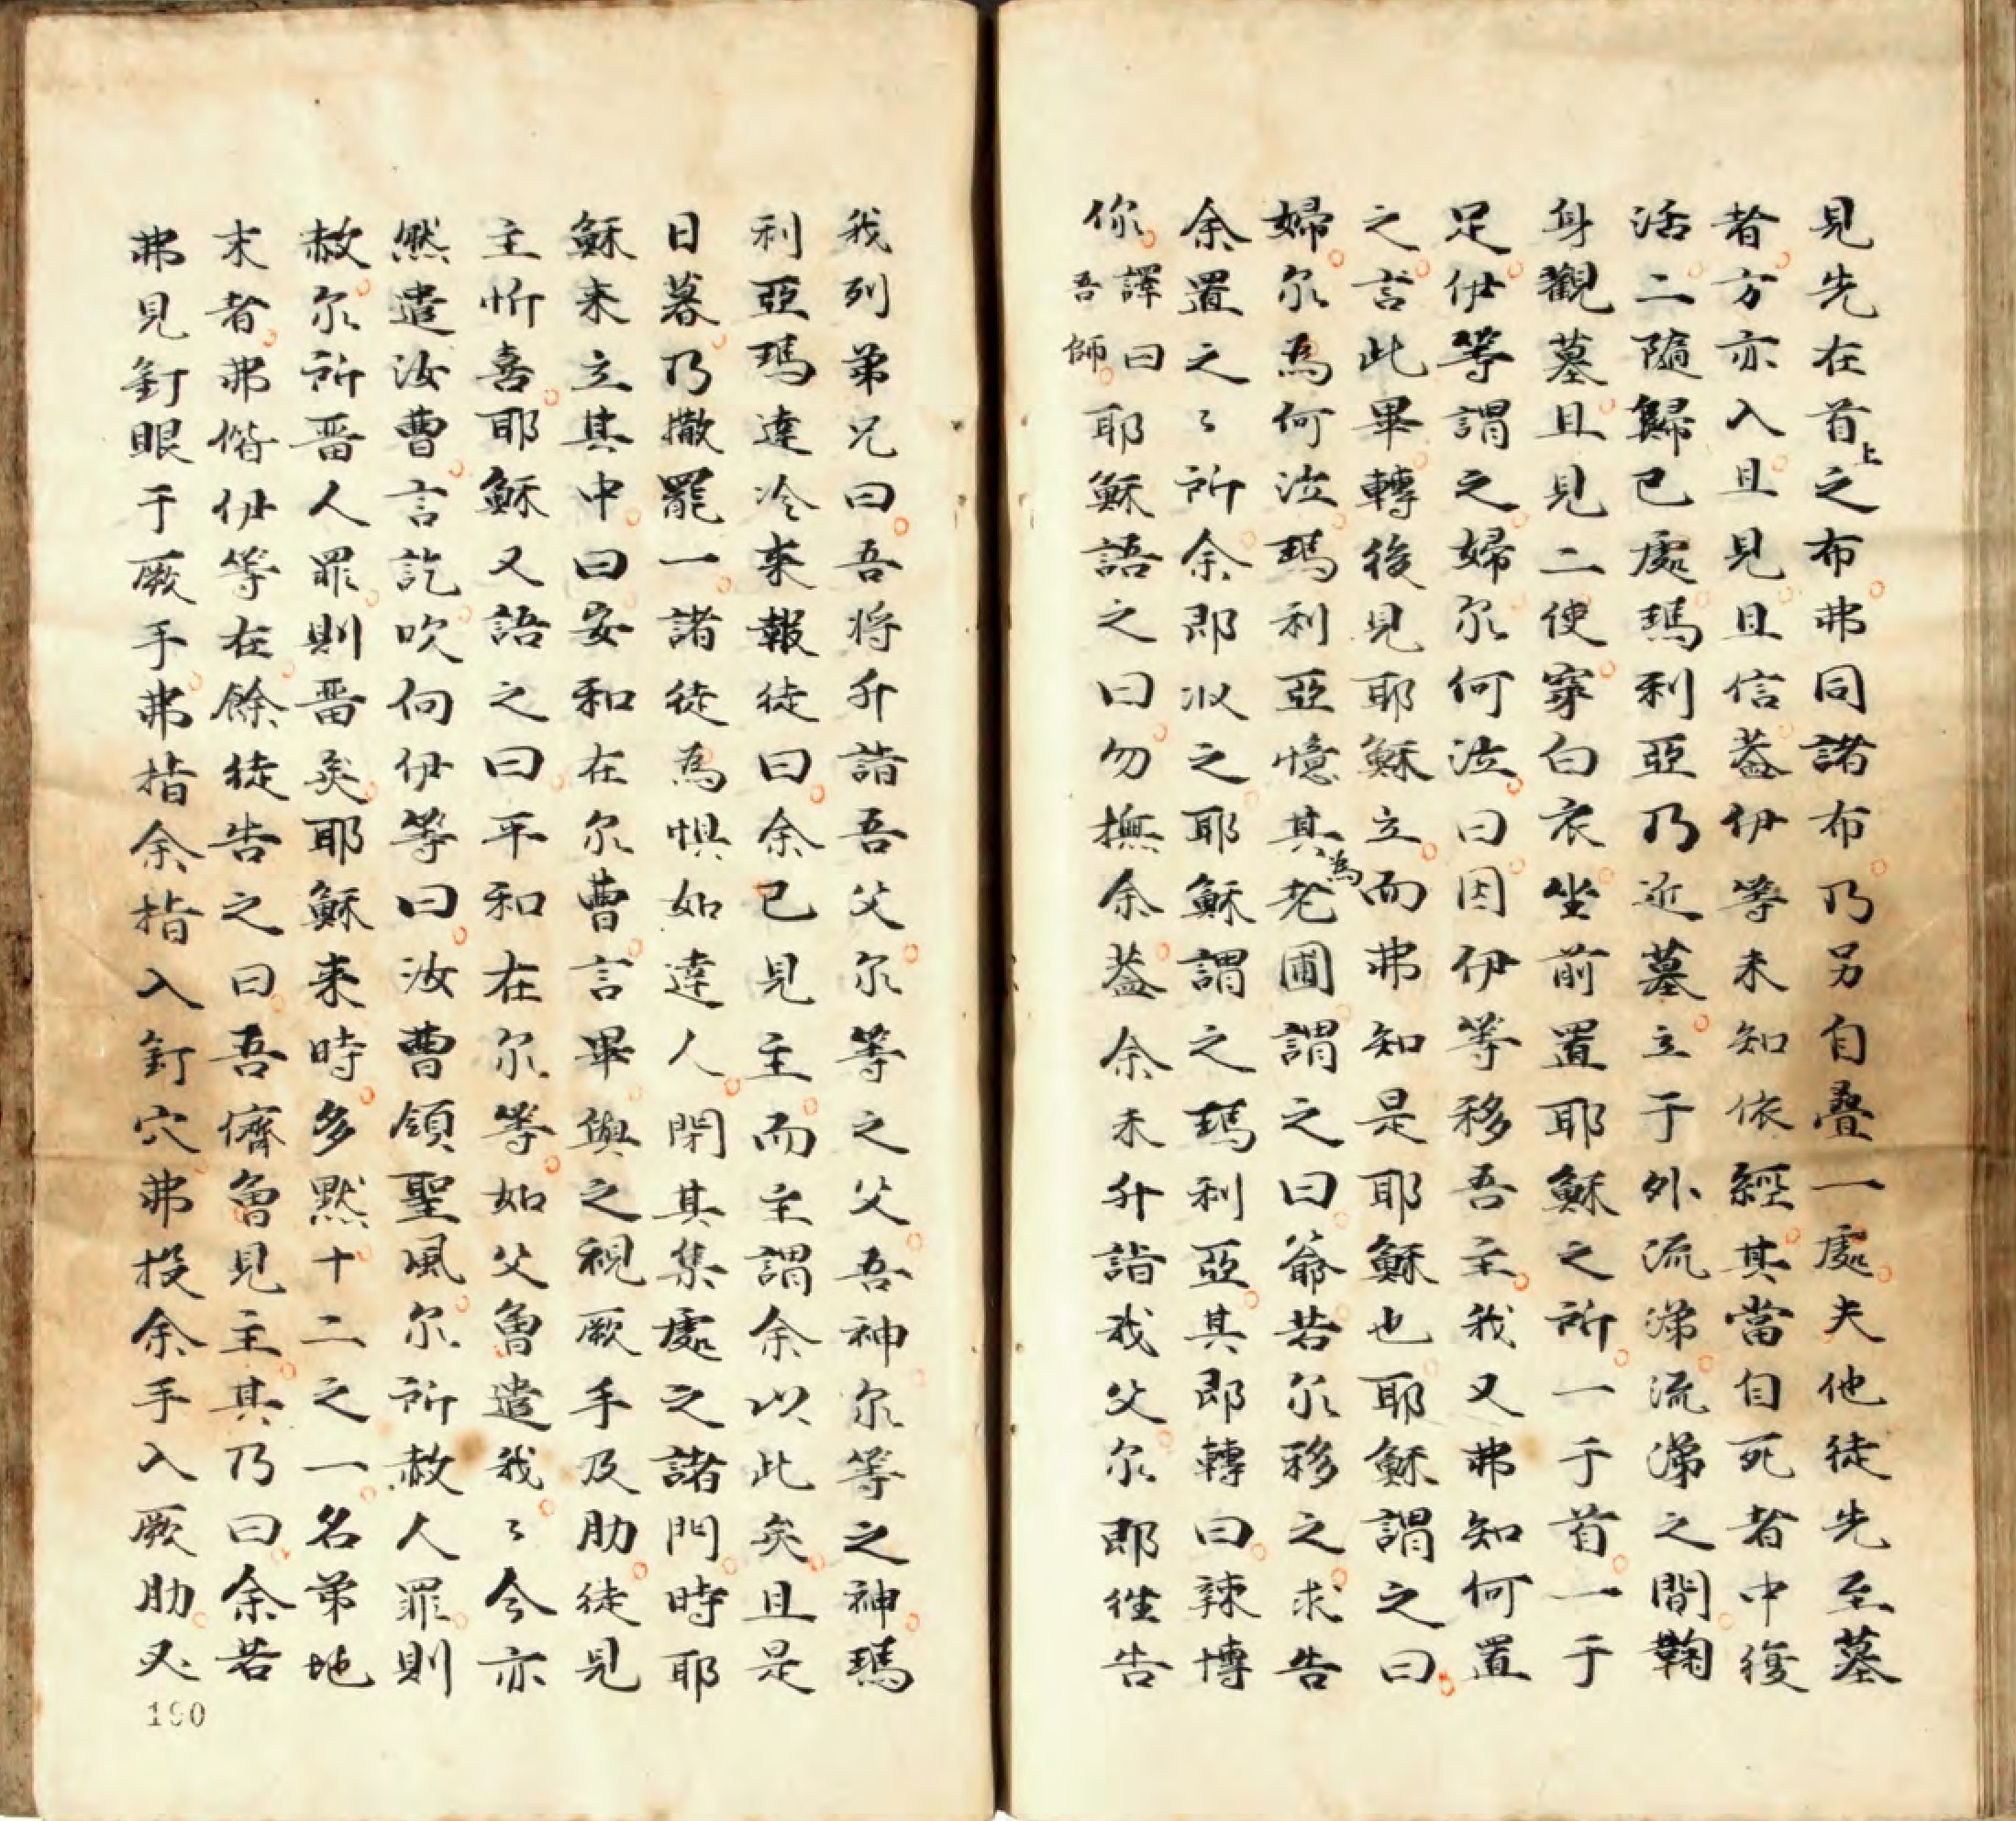 見先在首上之布弗同諸布乃另自疊一處夫他徒先至墓
者方亦入且見且信葢伊等未知依經其當自死者中復
活二随歸已處瑪利亞乃近墓立于外流涕流涕之間鞠
身觀墓且見二使穿白衣坐前置耶穌之所一于首一于
足伊等謂之婦尔何泣曰因伊等移吾主我又弗知何置
之言此畢轉後見耶穌立而弗知是耶穌也耶穌謂之曰
婦尔為何泣瑪利亞憶其為老圃謂之曰爺若尔移之求告
余置之〻所余即収之耶穌謂之瑪利亞其即轉曰辣博
你譯曰吾師耶穌語之曰勿撫余葢余未升詣我父尔即徃告
我列弟兄曰吾将升詣吾父尔等之父吾神尔等之神瑪
利亞瑪達冷来報徒曰余已見主而主謂余以此矣且是
日暮乃撒罷一諸徒為惧如達人閉其集處之諸門時耶
穌来立其中曰安和在尔曹言畢與之視厥手及肋徒見
主忻喜耶穌又語之曰平和在尔等如父魯遣我〻今亦
然遣汝曹言訖吹向伊等曰汝曹領聖風尔所赦人罪則
赦尔所畱人罪則畱矣耶穌来時多黙十二之一名弟地
末者弗偕伊等在餘徒告之曰吾儕魯見主其乃曰余若
弗見釘眼于厥手弗指余指入釘穴弗投余手入厥肋又
190